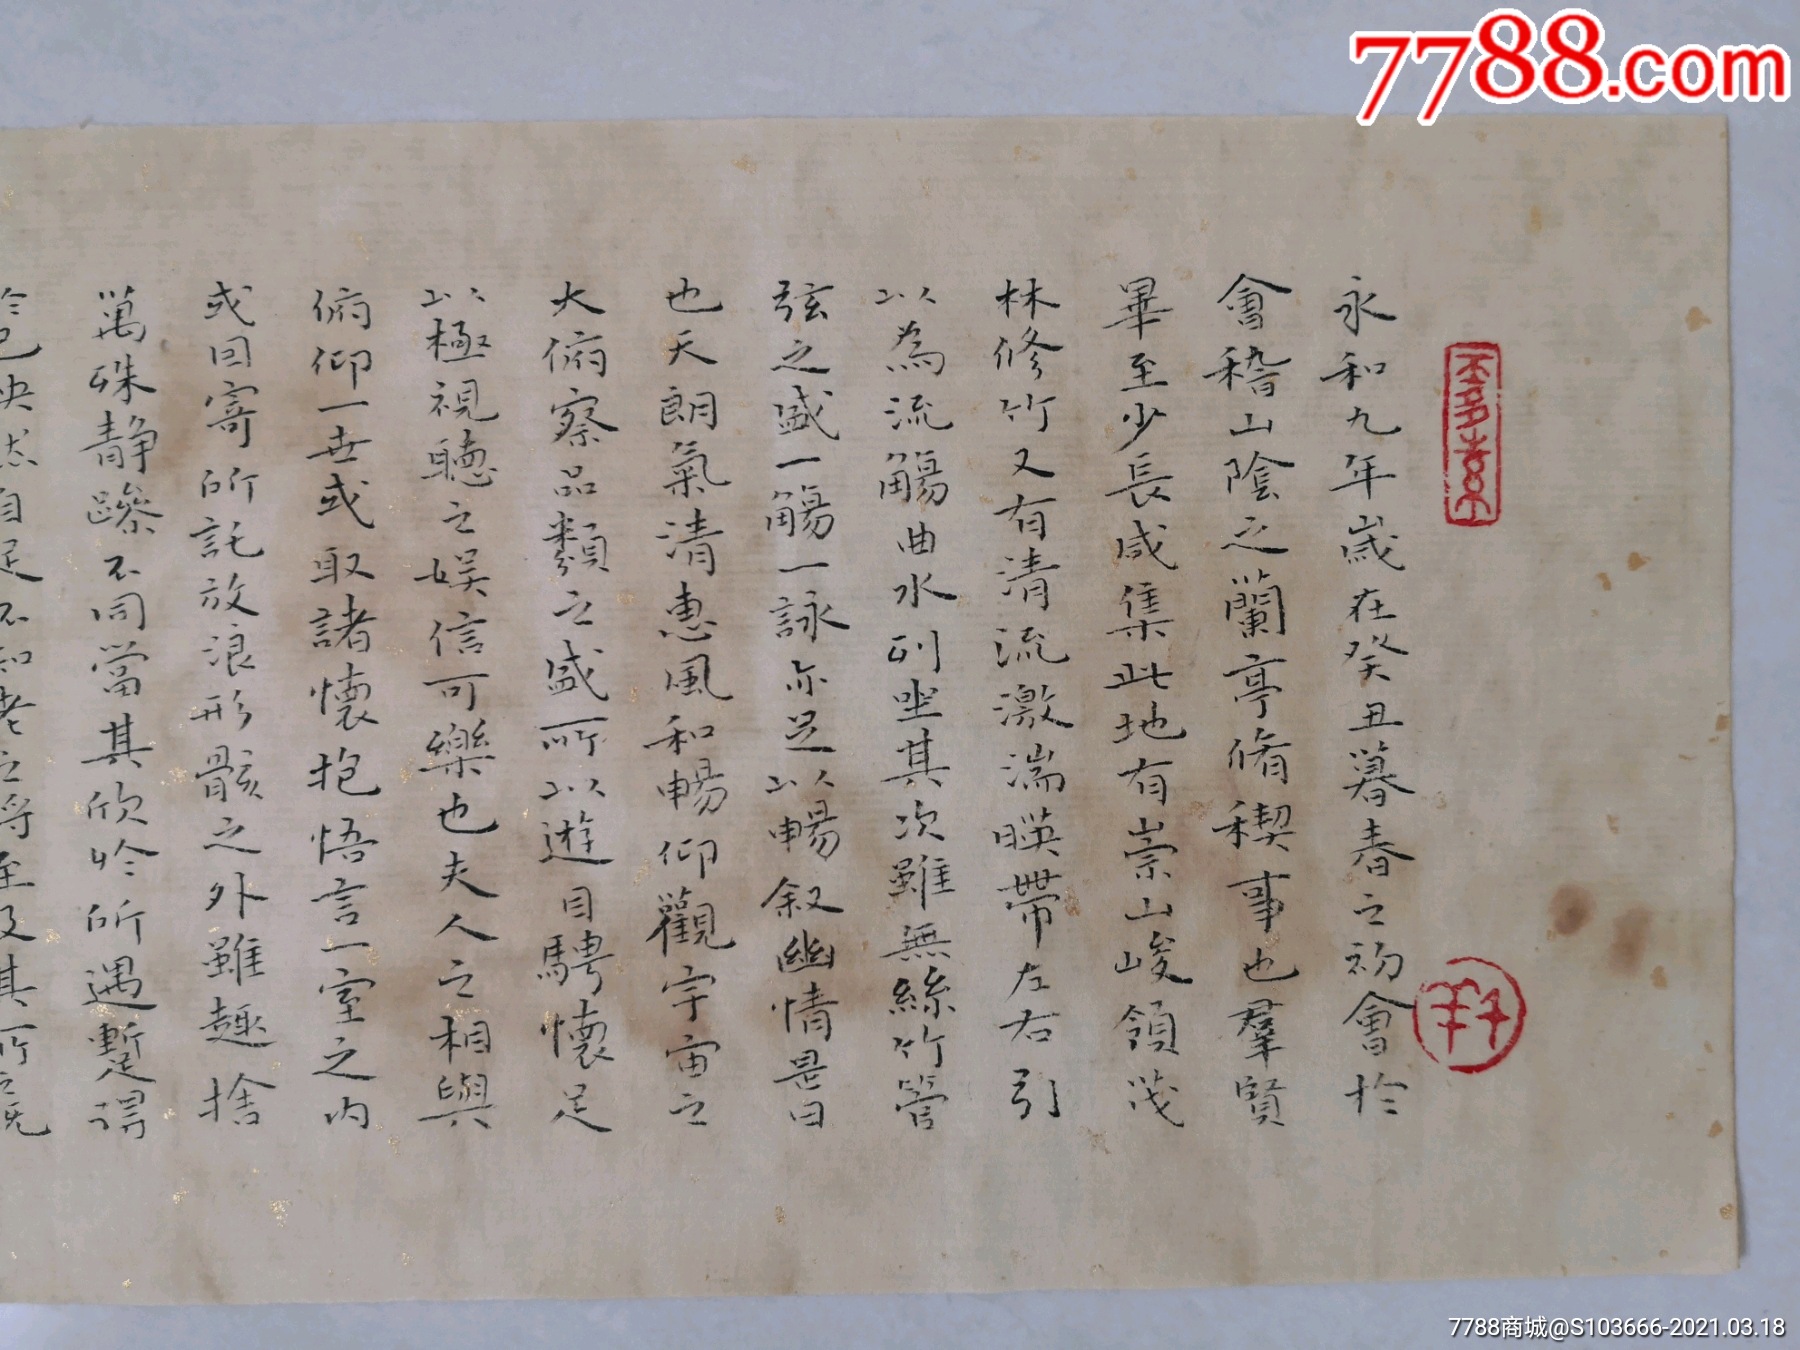 7788.com
永和九年歲在癸丑暮春之初會於
會稽山陰之蘭亭脩稧事也羣賢
畢至少長咸集此地有崇山峻領茂
林修竹又有清流激湍暎帶左右引
以為流觴曲水列坐其次雖無絲竹管
弦之盛一觴一詠亦足以暢叙幽情是日
也天朗氣清惠風和暢仰觀宇宙之
大俯察品類之盛所以遊目騁懷足
以極視聽之娛信可樂也夫人之相與
俯仰一世或取諸懷抱悟言一室之內
或因寄所託放浪形骸之外雖趣捨
萬殊靜躁不同當其欣於所遇暫得
於己怏然自足不知老之將至及其所之既
7788商城@S103666-2021.03.18